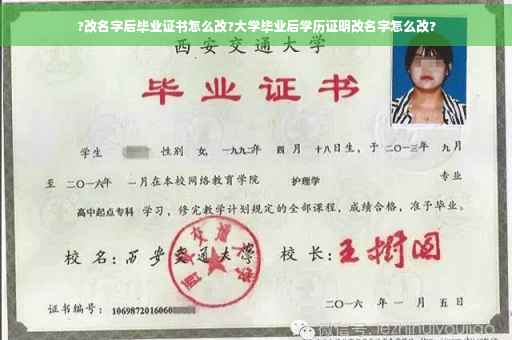 ?改名字后毕业证书怎么改?大学毕业后学历证明改名字怎么改?
西安交通大学
毕业证书
学生 性别 女, 一九九二年 四 月 十八日生, 于 二〇一三年 九月
至 二〇一六年 一月在本校网络教育学院 护理学 专业
高中起点专科 学习, 修完教学计划规定的全部课程, 成绩合格, 准予毕业。
校 名: 西安交通大学 校 长: 王树国
证书编号: 1069872016060
二〇一六 年 一 月 五 日
微信号: jezhihuiyoujiao